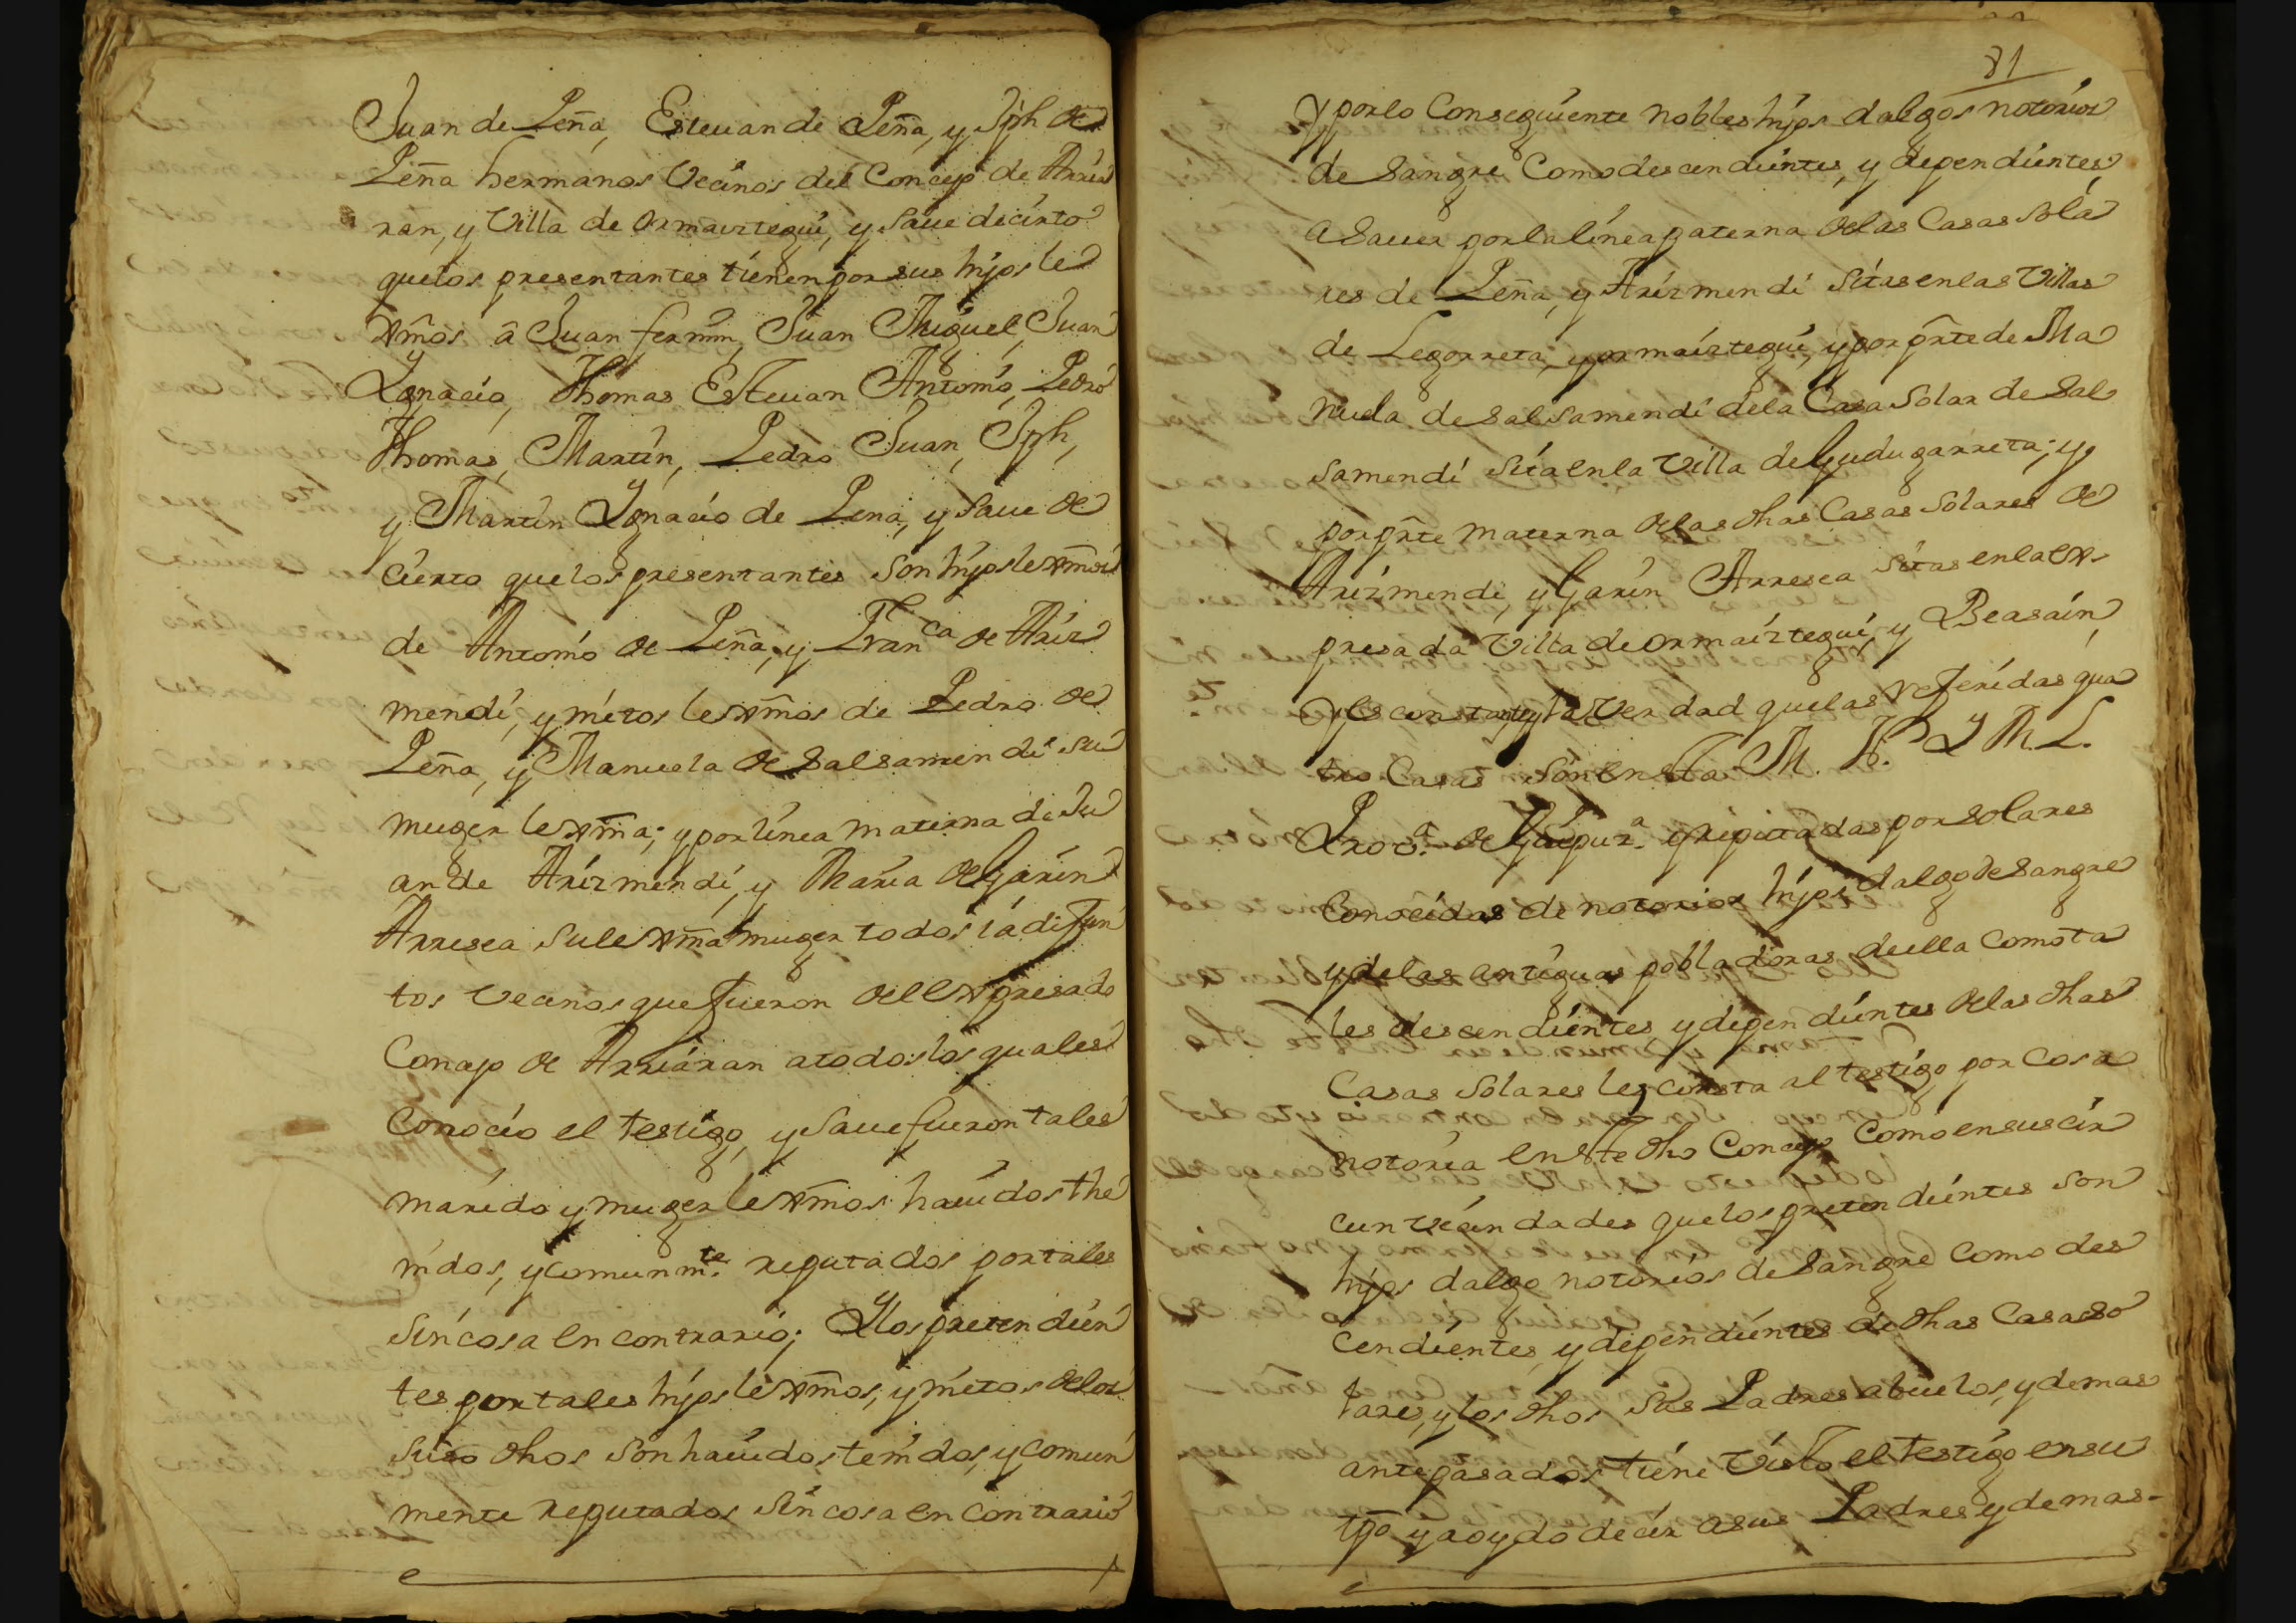 Juan de Peña, Estevan de Peña, y Jph de
Peña hermanos Vecinos del Concejo de Arria
ran, y Villa de Ormaiztegui, y Save de cierto
que los presentantes tienen por sus hijos le
xmos â Juan fermin, Juan Miguel, Juan
Ygnacio, Thomas Estevan Antonio, Pedro
Thomas, Martin, Pedro Juan, Jph,
y Martin Ygnacio de Pena, y Save de
cierto que los presentantes son hijos lexmos
de Antonio de Peña, y Franca de Ariz
mendi, y nietos lexmos de Pedro de
Peña, y Manuela de Salsamendi su
muger lexma; y por linea materna de Ju
an de Arizmendi, y Maria de Garin
Arresea su lexma muger todos ia difun
tos Vecinos que fueron del expresado
Concejo de Arriaran a todos los quales
Conocio el testigo, y Save fueron tales
marido y muger lexmos havidos the
nidos, y comunmte reputados por tales
sin cosa en contrario; Y los pretendien
tes por tales hijos lexmos, y nietos de los
suso dhos son havidos tenidos, y comun
mente reputados sin cosa en contrario
81
Y por lo Conseguiente nobles hijos dalgos notorios
de Sangre Como descendientes, y dependientes
a Saver por la linea paterna de las Casas Sola
res de Peña, y Arizmendi Sitas en las Villas
de Legorreta, y ormaiztegui, y por pñte de Ma
nuela de Salsamendi de la Casa Solar de Sal
samendi Sita en la Villa de Gudugarreta; y
por pñte materna de las dhas Casas Solares de
Arizmendi, y Garin Arresea Sitas en la ex
presada Villa de ormaiztegui, y Beasain,
Y es constante la Verdad que las referidas qua
tro Casas Son en esta M. N. Y M. L.
Proba de Guipuza reputadas por Solares
Conocidas de notorios hijos dalgo de Sangre
y de las antiguas pobladoras de ella Como ta
les descendientes y dependientes de las dhas
Casas Solares les consta al testigo por Cosa
notoria en este dho Concejo Como en sus cir
cunvecindades que los pretendientes Son
hijos dalgo notorios de Sangre Como des
cendientes, y dependientes de dhas Casas So
lares, y los dhos sus Padres abuelos, y demas
antepasados tiene Visto el testigo en su
tpo y a oydo decir a sus Padres y demas-